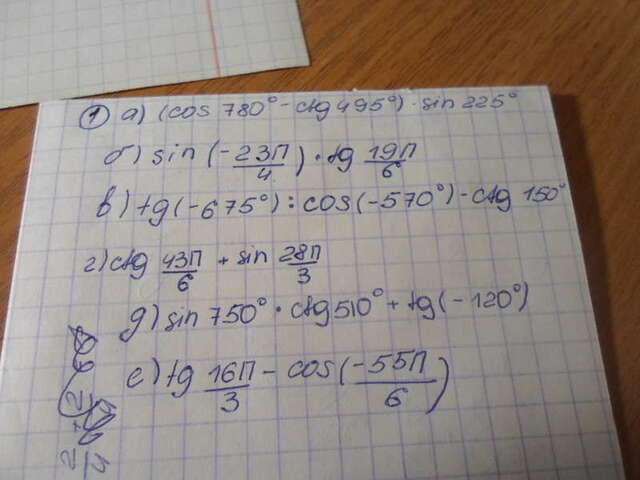 ① а) (cos 780° - ctg 495°) · sin 225°
б) sin (-23П/4) · tg 19П/6
в) tg(-675°) : cos(-570°) - ctg 150°
г) ctg 43П/6 + sin 28П/3
д) sin 750° · ctg 510° + tg(-120°)
е) tg 16П/3 - cos(-55П/6)